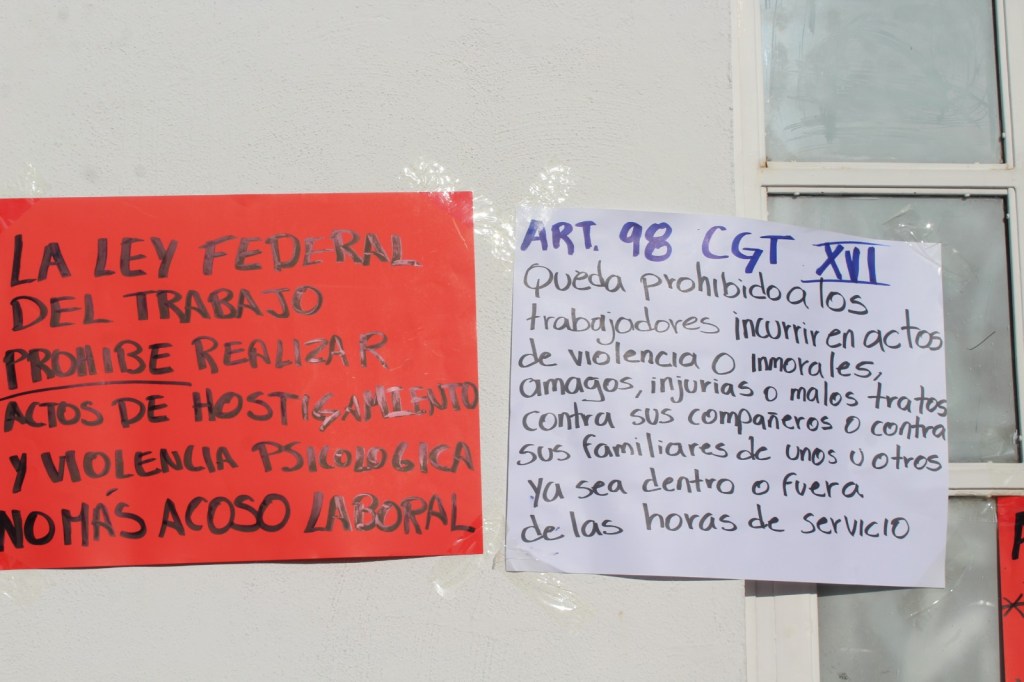 LA LEY FEDERAL
DEL TRABAJO
PROHIBE REALIZAR
ACTOS DE HOSTIGAMIENTO
Y VIOLENCIA PSICOLOGICA
NO MÁS ACOSO LABORAL
ART. 98 CGT XVI
Queda prohibido a los
trabajadores incurrir en actos
de violencia o inmorales,
amagos, injurias o malos tratos
contra sus compañeros o contra
sus familiares de unos u otros
ya sea dentro o fuera
de las horas de servicio